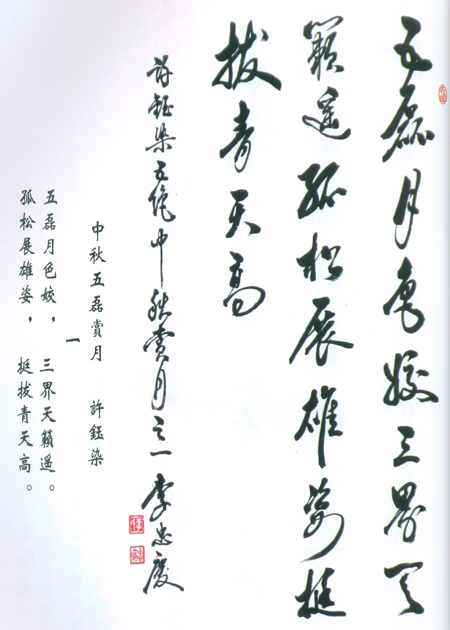 五磊月色姣三界天
籟遥孤松展雄姿挺
拔青天高
許鈺染五绝中秋赏月之一 李忠慶
中秋五磊賞月 許鈺染
一
五磊月色姣， 三界天籟遥。
孤松展雄姿， 挺拔青天高。